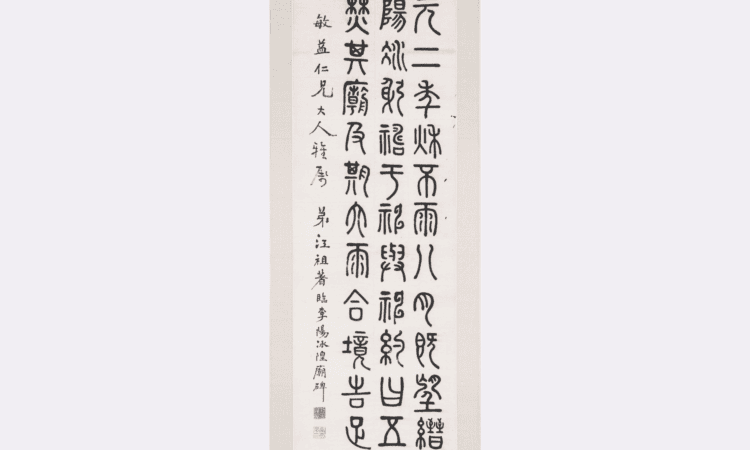 元二年秌不雨八月既望縉
陽冰躬禱于神與神約曰五
焚其廟及期大雨合境告足
敏益仁兄大人雅屬 弟汪祖著臨李陽冰隍廟碑